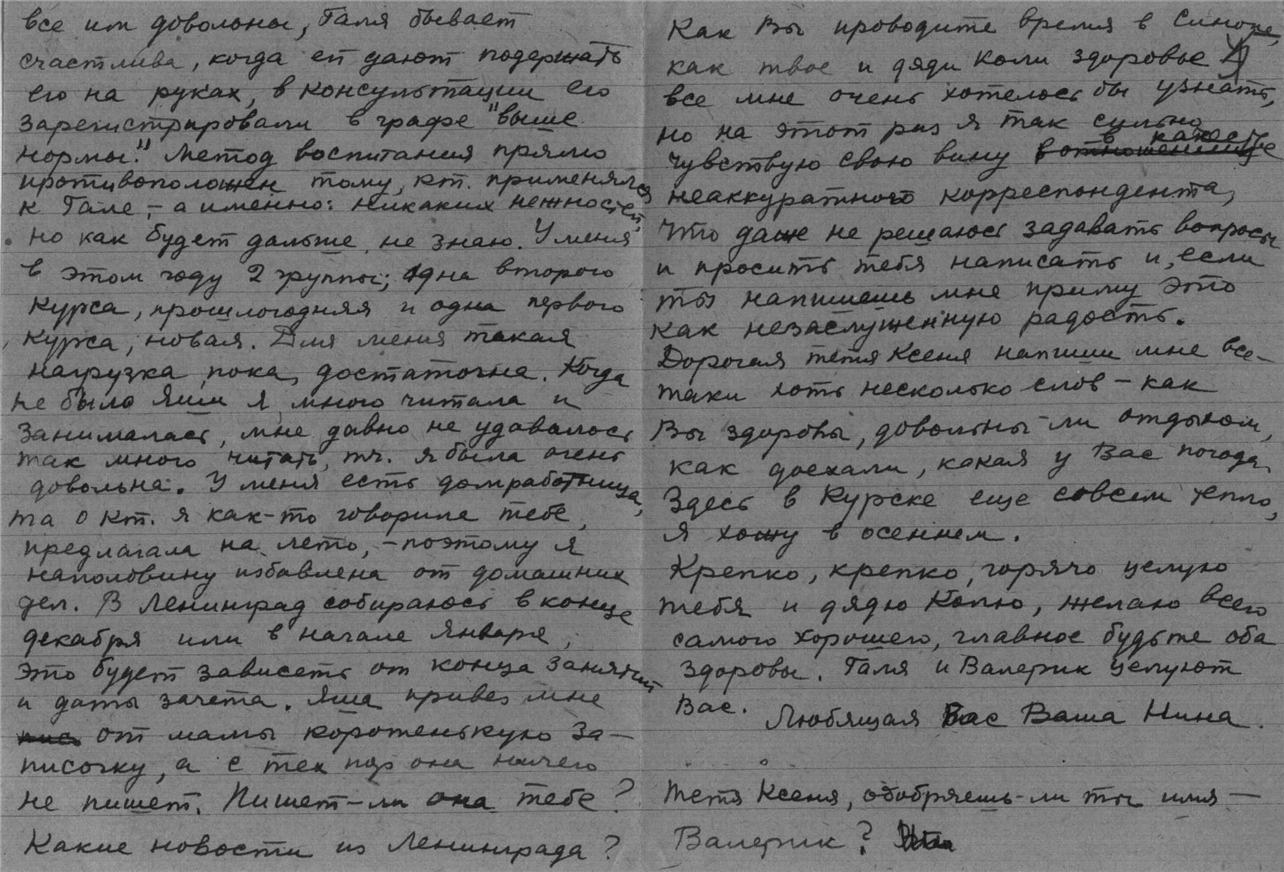 все им довольны, Галя бывает
счастлива, когда ей дают подержать
его на руках, в консультации его
зарегистрировали в графе "выше
нормы." Метод воспитания прямо
противоположен тому, кт. применялся
к Гале, – а именно: никаких нежностей,
но как будет дальше, не знаю. У меня
в этом году 2 группы; одна второго
курса, прошлогодняя и одна первого
курса, новая. Для меня такая
нагрузка, пока, достаточна. Когда
не было Яши я много читала и
занималась, мне давно не удавалось
так много читать, тч. я была очень
довольна. У меня есть домработница,
та о кт. я как-то говорила тебе,
предлагала на лето, – поэтому я
наполовину избавлена от домашних
дел. В Ленинград собираюсь в конце
декабря или в начале января,
это будет зависеть от конца занятий
и даты зачета. Яша привез мне
от мамы коротенькую за–
писочку, а с тех пор она ничего
не пишет. Пишет-ли она тебе?
Какие новости из Ленинграда?
Как Вы проводите время в Синопе,
как твое и дяди Коли здоровье
все мне очень хотелось бы узнать,
но на этот раз я так сильно
чувствую свою вину в качестве
неаккуратного корреспондента,
что даже не решаюсь задавать вопросы
и просить тебя написать и, если
ты напишешь мне приму это
как незаслуженную радость.
Дорогая тетя Ксеня напиши мне все–
таки хоть несколько слов – как
Вы здоровы, довольны ли отдыхом,
как доехали, какая у Вас погода.
Здесь в Курске еще совсем тепло,
я хожу в осеннем.
Крепко, крепко, горячо целую
тебя и дядю Колю, желаю всего
самого хорошего, главное будьте оба
здоровы. Галя и Валерик целуют
Вас. Любящая Вас Ваша Нина.
Тетя Ксеня, одобряешь-ли ты имя –
Валерик?